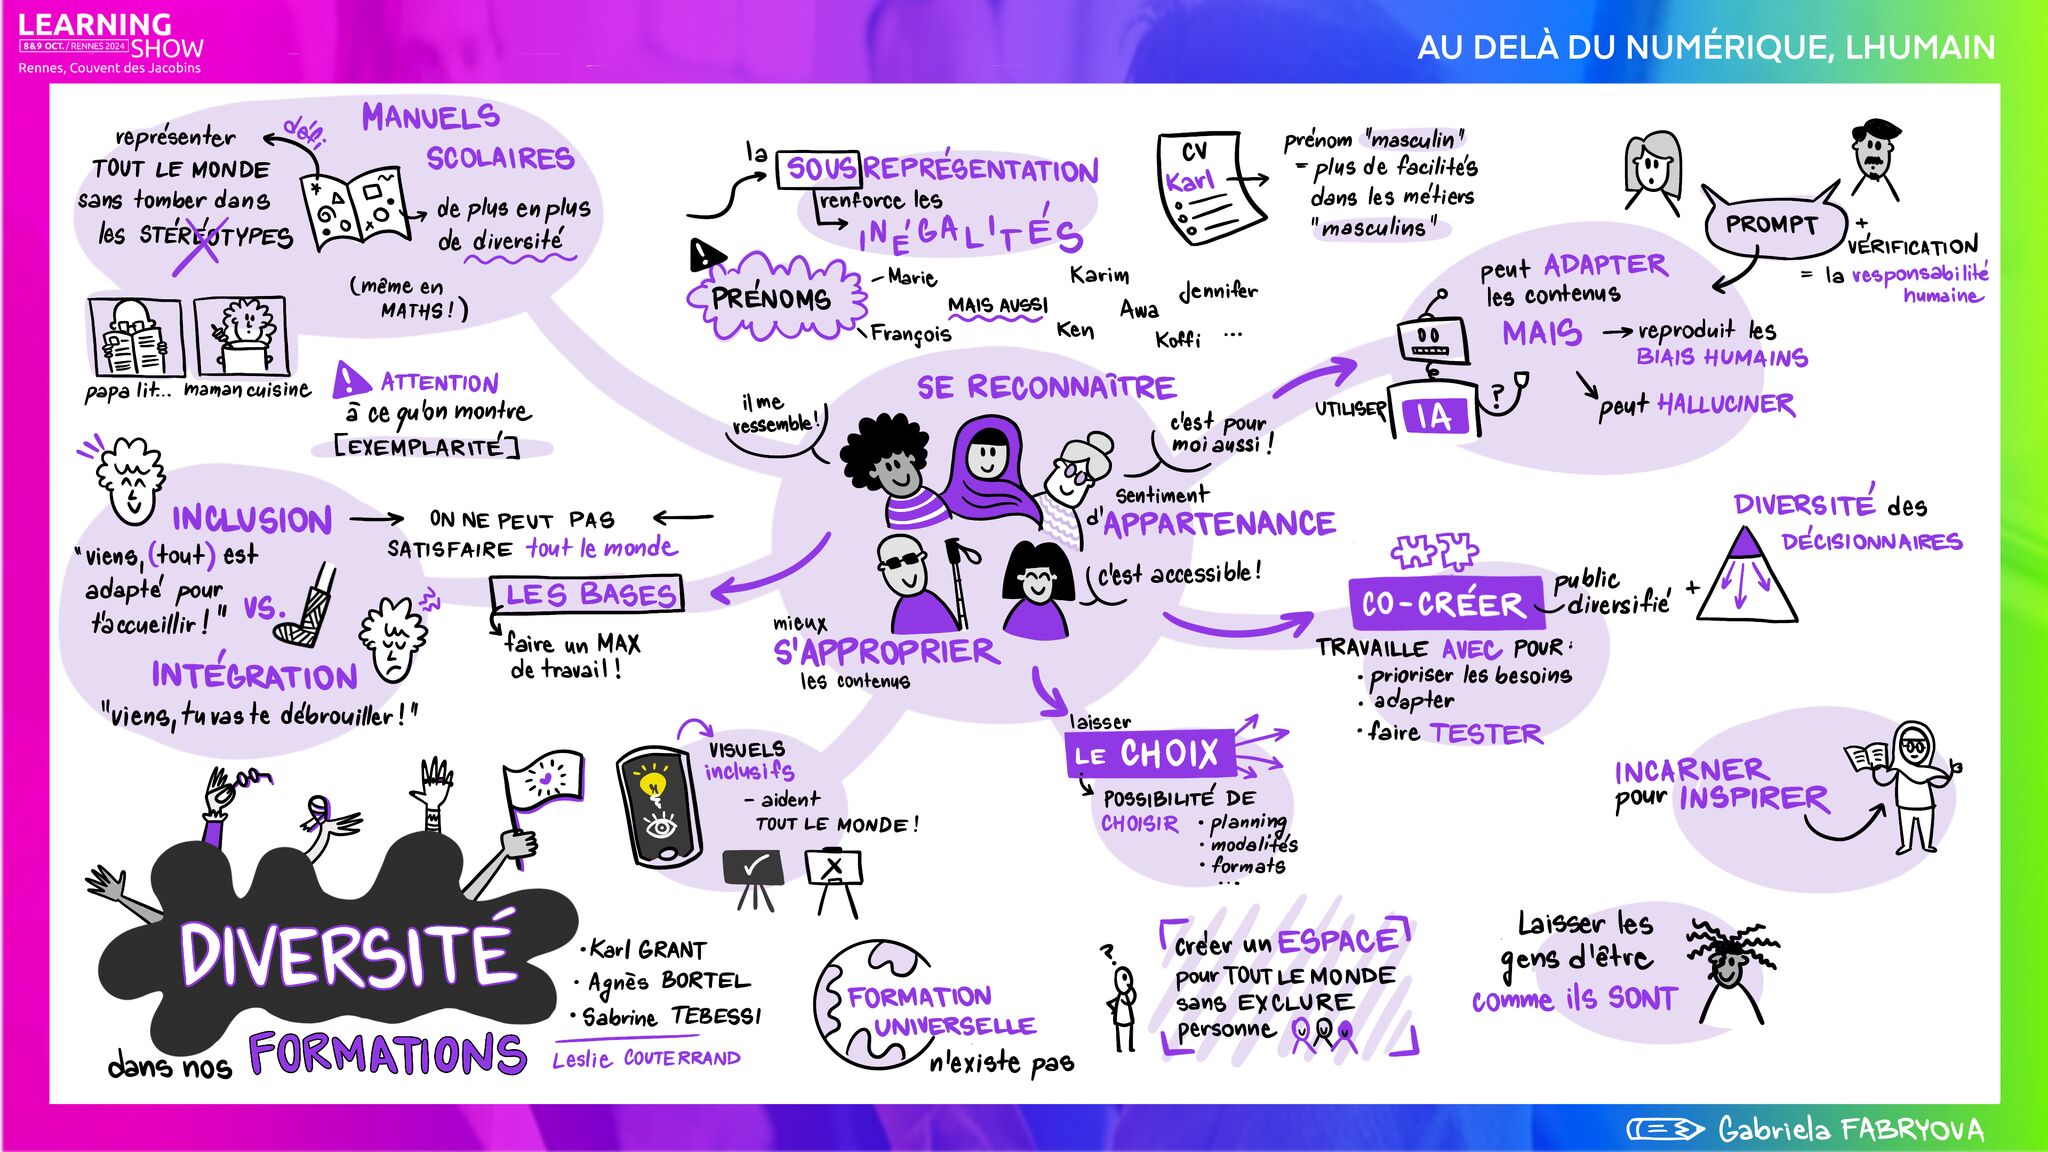 LEARNING
8&9 OCT. / RENNES 2024 SHOW
Rennes, Couvent des Jacobins
AU DELÀ DU NUMÉRIQUE, LHUMAIN
MANUELS
SCOLAIRES
défi
représenter
TOUT LE MONDE
sans tomber dans
les STÉRÉOTYPES
de plus en plus
de diversité
(même en
MATHS!)
papa lit... maman cuisine
ATTENTION
à ce qu'on montre
[EXEMPLARITÉ]
la
SOUS REPRÉSENTATION
renforce les
INÉGALITÉS
PRÉNOMS
Marie
François
MAIS AUSSI
Karim
Ken
Awa
Jennifer
Koffi ...
CV
Karl
prénom "masculin"
= plus de facilités
dans les métiers
"masculins"
PROMPT
+
VÉRIFICATION
= la responsabilité
humaine
peut ADAPTER
les contenus
MAIS
reproduit les
BIAIS HUMAINS
peut HALLUCINER
UTILISER
IA
?
SE RECONNAÎTRE
il me
ressemble!
c'est pour
moi aussi!
sentiment
d'APPARTENANCE
c'est accessible!
mieux
S'APPROPRIER
les contenus
INCLUSION
"viens, (tout) est
adapté pour
t'accueillir!"
VS.
INTÉGRATION
"viens, tu vas te débrouiller!"
ON NE PEUT PAS
SATISFAIRE tout le monde
LES BASES
faire un MAX
de travail!
CO-CRÉER
public
diversifié
+
DIVERSITÉ des
DÉCISIONNAIRES
TRAVAILLE AVEC POUR:
• prioriser les besoins
• adapter
• faire TESTER
laisser
LE CHOIX
POSSIBILITÉ DE
CHOISIR
• planning
• modalités
• formats
...
VISUELS
inclusifs
- aident
TOUT LE MONDE!
INCARNER
pour INSPIRER
DIVERSITÉ
dans nos FORMATIONS
• Karl GRANT
• Agnès BORTEL
• Sabrine TEBESSI
Leslie COUTERRAND
FORMATION
UNIVERSELLE
n'existe pas
?
créer un ESPACE
pour TOUT LE MONDE
sans EXCLURE
personne
Laisser les
gens d'être
comme ils SONT
Gabriela FABRYOVA